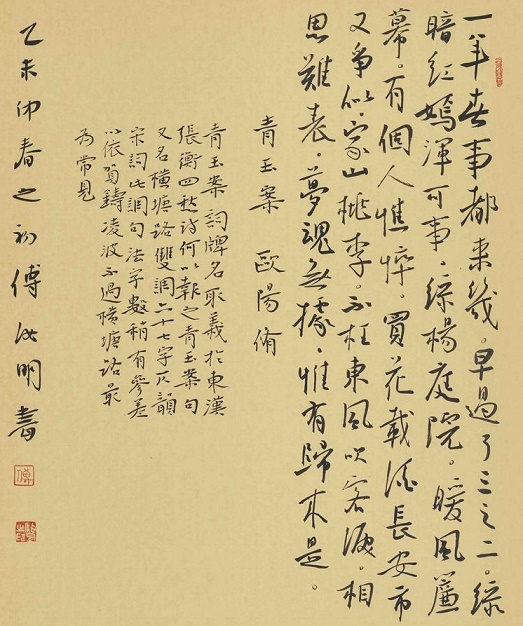 一年春事都來幾。早過了三之二。綠
暗紅嫣渾可事。綠楊庭院。暖風簾
幕。有個人憔悴。買花載酒長安市
又爭似。家山桃李。不枉東風吹客淚。相
思難表。夢魂無據。惟有歸來是。
青玉案 歐陽脩
青玉案 詞牌名取義於東漢
張衡四愁詩何以報之青玉案句
又名橫塘路雙調六十七字仄韻
宋詞此調句法字數稍有參差
以依賀鑄凌波不過橫塘路最
為常見
乙未仲春之初傅汝明書